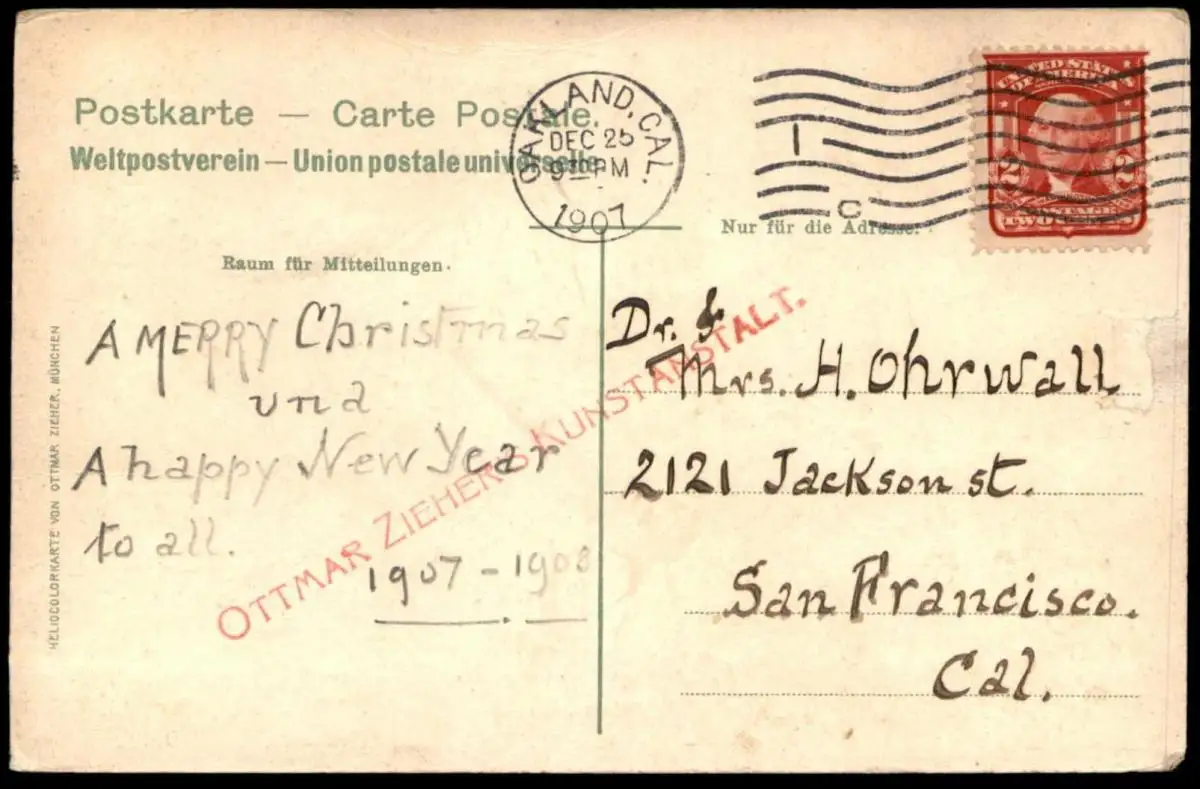 Postkarte — Carte Postale.
Weltpostverein — Union postale universelle.
OAKLAND, CAL.
DEC 25
9 30 PM
1907
1
C
UNITED STATES
OF AMERICA
2 2
TWO CENTS
Nur für die Adresse.
Raum für Mitteilungen.
A MERRY Christmas
und
A happy New Year
to all.
1907 - 1908
Dr. &
Mrs. H. Ohrwall
2121 Jackson st.
San Francisco.
Cal.
OTTMAR ZIEHER'S KUNSTANSTALT.
HELIOCOLORKARTE VON OTTMAR ZIEHER, MÜNCHEN